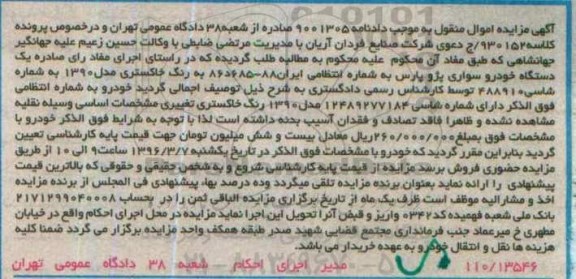 آگهی مزایده اموال منقول به موجب دادنامه ۹۰۰۱۳۰۵ صادره از شعبه۳۸ دادگاه عمومی تهران و درخصوص پرونده
کلاسه۹۳۰۱۵۲/ج دعوی شرکت صنایع فردان آریان با مدیریت مرتضی ضابطی با وکالت حسین زعیم علیه جهانگیر
جهانشاهی که طبق مفاد آن محکوم علیه محکوم به مطالبه طلب گردیده که در راستای اجرای مفاد رای صادره یک
دستگاه خودرو سواری پژو پارس به شماره انتظامی ایران۸۸-۶۸۵د۸۶ به رنگ خاکستری مدل۱۳۹۰ به شماره
شاسی۴۸۸۹۱۰ توسط کارشناس رسمی دادگستری به شرح ذیل توصیف اجمالی گردید خودرو به شماره انتظامی
فوق الذکر دارای شماره شاسی۱۲۴۸۹۲۷۷۱۸۴ مدل۱۳۹۰ رنگ خاکستری تغییری مشخصات اساسی وسیله نقلیه
مشاهده نشده و ظاهرا فاقد تصادف و فقدان آسیب بدنه داشته است لذا با توجه به شرایط فوق الذکر خودرو با
مشخصات فوق بمبلغ۲۶۰/۰۰۰/۰۰۰ریال معادل بیست و شش میلیون تومان جهت قیمت پایه کارشناسی تعیین
گردید بنابراین مقرر گردید که خودرو با مشخصات فوق الذکر در تاریخ یکشنبه ۱۳۹۶/۳/۷ ساعت۹ الی ۱۰ از طریق
مزایده حضوری فروش برسد مزایده از قیمت پایه کارشناسی شروع و به شخص حقیقی و حقوقی که بالاترین قیمت
پیشنهادی را ارائه نماید بعنوان برنده مزایده تلقی میگردد وده درصد بها، پیشنهادی فی المجلس از برنده مزایده
اخذ و مشارالیه موظف است ظرف یک ماه از تاریخ برگزاری مزایده الباقی ثمن را در بحساب ۲۱۷۱۲۹۹۰۴۰۰۰۸
بانک ملی شعبه فهمیده کد۰۳۴۲ واریز و قبض آنرا تحویل این اجرا نماید مزایده در محل اجرای احکام واقع در خیابان
مطهری خ میرعماد جنب فرمانداری مجتمع قضایی شهید صدر طبقه همکف واحد مزایده برگزار می گردد ضمنا کلیه
هزینه ها نقل و انتقال خودرو به عهده خریدار می باشد.
۱۱۰/۱۳۵۴۶ مدیر اجرای احکام شعبه ۳۸ دادگاه عمومی تهران